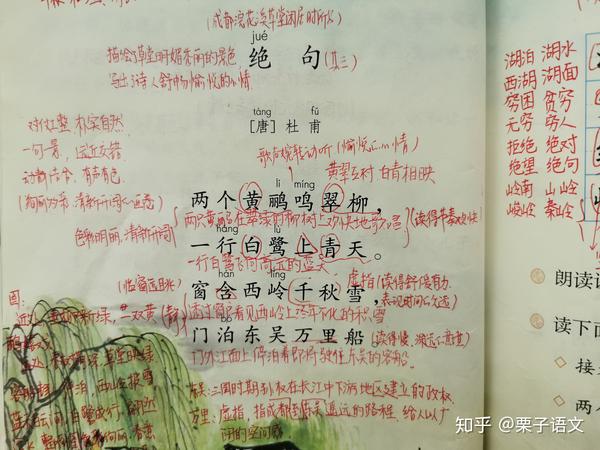 (成都浣花溪草堂闲居时所作)
jué
绝 句(其三)
描绘了草堂明媚秀丽的景色,
写出诗人舒畅愉悦的心情
táng fǔ
[唐] 杜 甫
对仗工整 朴实自然
一句一景,远近交错
动静结合,有声有色。
歌声婉转动听(愉悦心情)
黄翠互对 白青相映
lí míng
两个黄鹂鸣翠柳,
两只黄鹂在翠绿的柳树上欢快地歌唱
(读得节奏欢快)
色彩明丽,清新开阔
háng lù
一行白鹭上青天。
一行白鹭飞向高远的蓝天
(临窗远眺)
hán lǐng
窗含西岭千秋雪,
虚指(读得舒缓有力,
表现时间久远)
透过窗户看见西岭上终年不化的积雪
bó
门泊东吴万里船
(读得慢,深远的意境)
门外江面上停泊着即将驶往东吴的客船。
东吴:三国时期孙权在长江中下游地区建立的政权,
万里:虚指,指成都到东吴遥远的路程,给人以广
阔的空间感
湖泊 湖水
西湖 湖面
穷困 贫穷
无穷 穷人
拒绝 绝对
绝望 绝句
岭南 山岭
峻岭 秦岭
朗读课
读下面
接
两个
知乎 @栗子语文